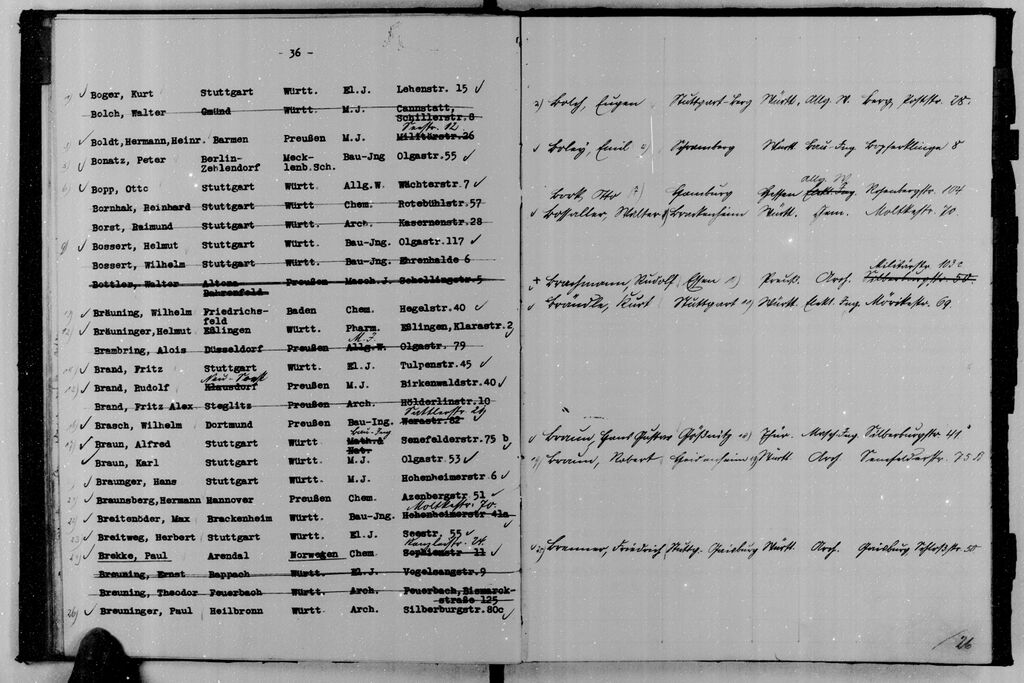 - 36 -
Boger, Kurt Stuttgart Württ. El.J. Lehenstr. 15
Bolch, Walter Gmünd Württ. M.J. Cannstatt,
Schillerstr.8
Seestr. 12
Boldt,Hermann,Heinr. Barmen Preußen M.J. Militärstr.26
Bonatz, Peter Berlin- Meck- Bau-Jng Olgastr.55
Zehlendorf lenb.Sch.
Bopp, Otto Stuttgart Württ Allg.W. Wächterstr.7
Bornhak, Reinhard Stuttgart Württ. Chem. Rotebühlstr.57
Borst, Raimund Stuttgart Württ. Arch. Kasernenstr.28
Bossert, Helmut Stuttgart Württ. Bau-Jng. Olgastr.117
Bossert, Wilhelm Stuttgart Württ. Bau-Jng. Ehrenhalde 6
Bottler, Walter Altona Preußen Masch.J. Schellingstr.5
Bahrenfeld
Bräuning, Wilhelm Friedrichs- Baden Chem. Hegelstr.40
feld
Bräuninger,Helmut Eßlingen Württ. Pharm. Eßlingen,Klarastr.2
M.J.
Brambring, Alois Düsseldorf Preußen Allg.W. Olgastr. 79
Brand, Fritz Stuttgart Württ. El.J. Tulpenstr.45
Brand, Rudolf Klausdorf Preußen M.J. Birkenwaldstr.40
Brand, Fritz Alex Steglitz Preußen Arch. Hölderlinstr.10
Sattlerstr 24
Brasch, Wilhelm Dortmund Preußen Bau-Ing. Werastr.62
Bau-Ing
Braun, Alfred Stuttgart Württ Math.& Senefelderstr.75 b
Nat.
Braun, Karl Stuttgart Württ. M.J. Olgastr.53
Braunger, Hans Stuttgart Württ. M.J. Hohenheimerstr.6
Braunsberg,Hermann Hannover Preußen Chem. Azenbergstr.51
Moltkestr. 70.
Breitenöder, Max Brackenheim Württ. Bau-Jng. Hohenheimerstr 41a
Breitweg, Herbert Stuttgart Württ. El.J Seestr. 55
Kanzleistr. 24.
Brekke, Paul Arendal Norwegen Chem. Sophienstr 11
Breuning, Ernst Bappach Württ. El.J. Vogelsangstr.9
Breuning, Theodor Feuerbach Württ. Arch. Feuerbach,Bismarck-
straße 125
26) Breuninger, Paul Heilbronn Württ Arch. Silberburgstr.80c
2) Bolch, Eugen Stuttgart-Berg Württ. Allg. W. Berg, Poststr. 28.
Boley, Emil Schramberg Württ Bau-Ing Hopfenklinge 8
Allg W
Bork, Otto Hamburg Hessen Elekt. Ing. Rosenbergstr. 104
Boßaller, Walter Brackenheim Württ. Chem. Moltkestr. 70.
Militärstr 103c
Brachmann, Rudolf Essen Preuß. Arch. Silberburgstr. 50
Brändle, Kurt Stuttgart Württ Elekt. Ing. Mörikestr. 69.
Braun, Hans Gustav Gößnitz Thür. Masch.Ing. Silberburgstr. 41
Braun, Robert Heidenheim Württ Arch Senefelderstr. 75 B
Brenner, Friedrich Stuttg. Gaisburg Württ. Arch. Gaisburg, Schloßstr. 50
26